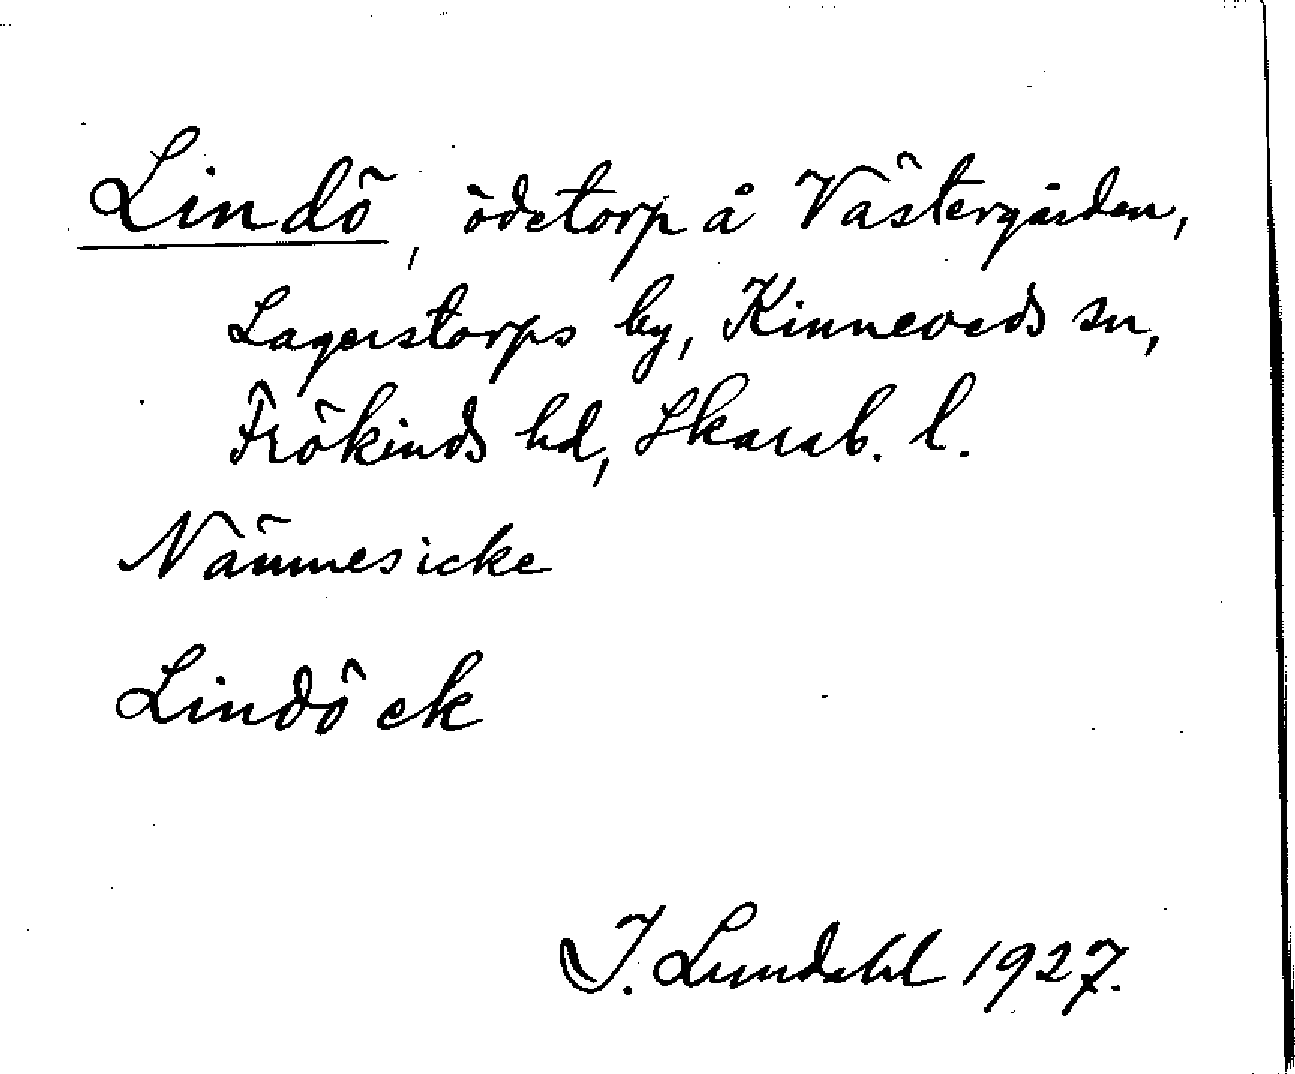 Lindö, ödetorp å Västergården,
Lagerstorps by, Kinneveds sn,
Frökinds hd, Skarab. l.
Nämnes icke
Lindö ek
I. Lundahl 1927.